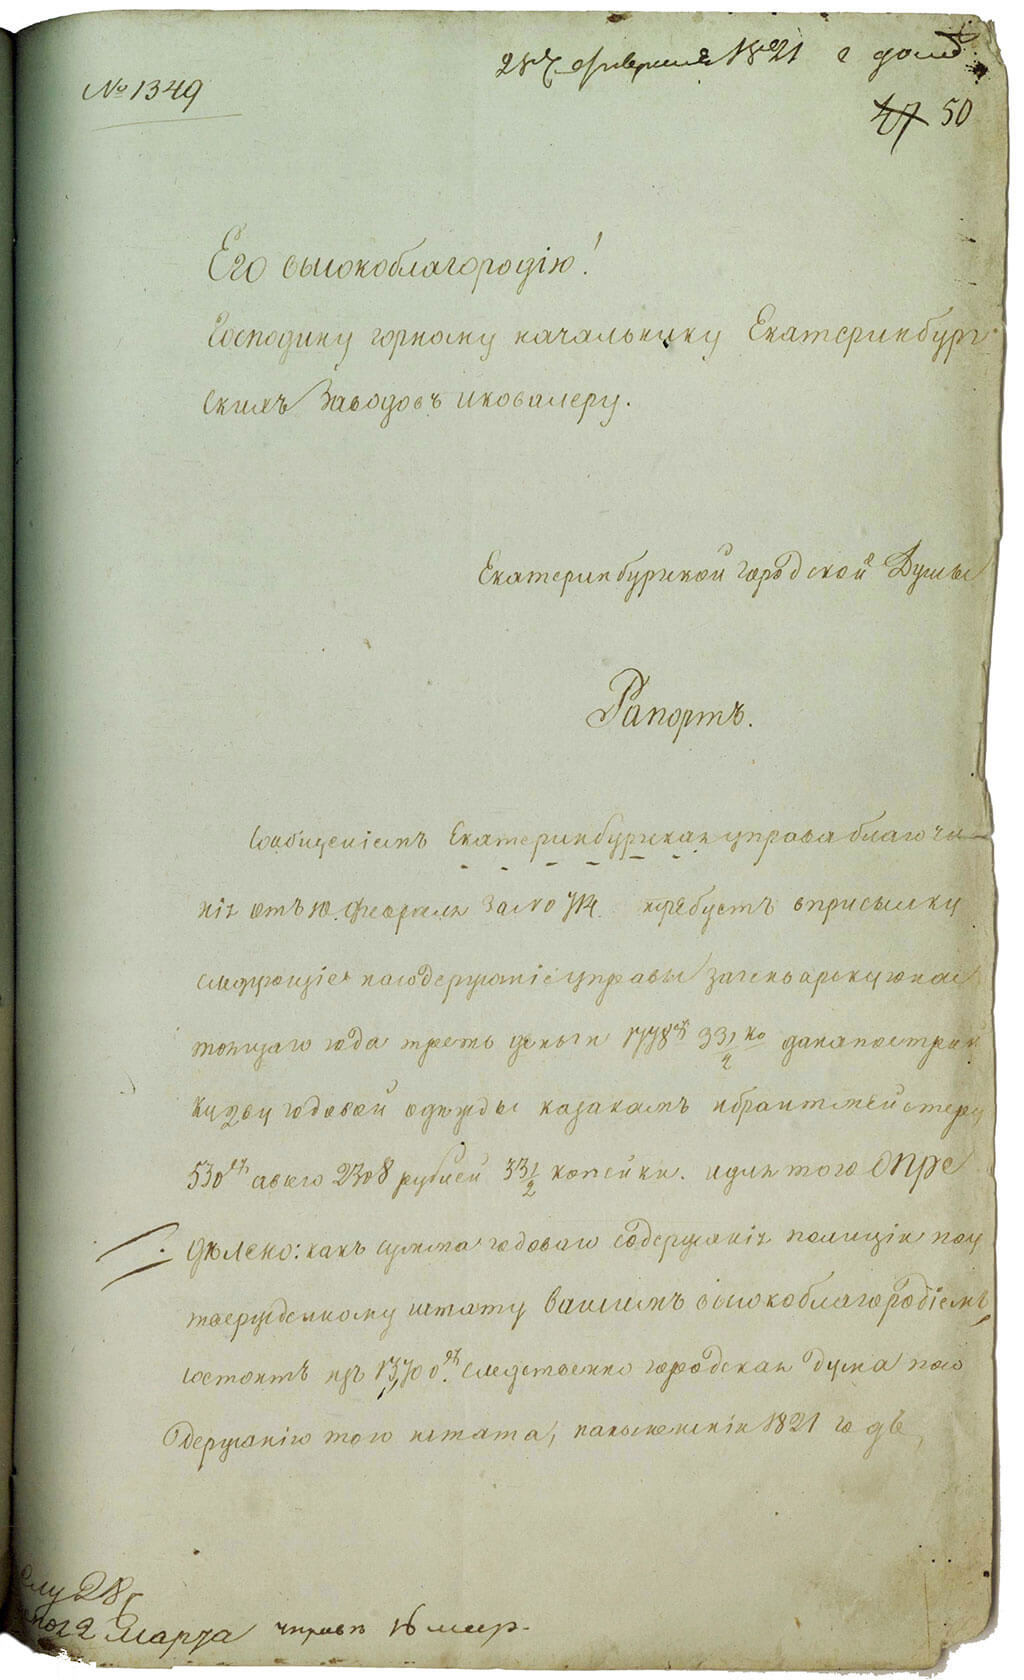 № 1349
28 февраля 1821
47 50
Его высокоблагородію!
Господину горному начальнику Екатеринбург-
скихъ Заводовъ икавалеру.
Екатеринбургской городской Думы
Рапортъ.
Сообщеніемъ Екатеринбургская управа благочи-
нія отъ 10. февраля за №о 714. требуетъ оприсылку
следующіе насодержаніе управы загенварскую нас
тоящаго года треть деньги 1778 33 1/2 ко данапостройк
годовой одежды казакамъ ибрантмейстеру
530 авсего 2308 рублей 33 1/2 копейки. идля того Опре
дѣлено: какъ сумма годоваго содержанія полиціи поу
твержденному штату вашимъ высокоблагородіемъ,
состоитъ изъ 13,700 следственно городская дума посо
держанію того штата, нанынешній 1821 годъ,
28
2 Марта 16 мар.